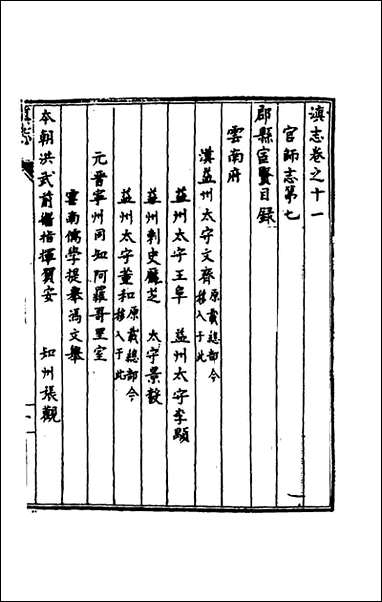 滇志卷之十一
官師志第七
郡縣宦賢目録
雲南府
漢益州太守文齊原載總部今移入于此
益州太守王阜 益州太守李顒
益州刺史龐芝 太守景毅
益州太守董和原載總部今移入于此
元晋寧州同知阿羅哥里室
雲南儒學提舉馮文舉
本朝洪武前衛指揮賀安 知州張觀